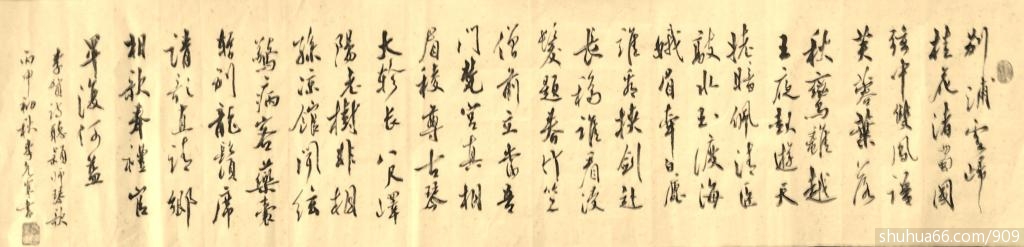 别浦雲歸
桂花渚蜀國
弦中雙鳳語
芙蓉葉落
秋鸞離越
王夜起遊天
姥暗佩清臣
敲水玉渡海
娥眉牽白鹿
誰看挾劍赴
長橋誰看浸
髮題春竹竺
僧前立當吾
門梵宮真相
眉稜尊古琴
大軫長八尺嶧
陽老樹非桐
孫涼館聞弦
驚病客藥囊
暫别龍鬚席
請歌直請卿
相歌奉禮官
卑復何益
李賀詩聽穎師琴歌
丙申初秋書
shuhua66.com/909